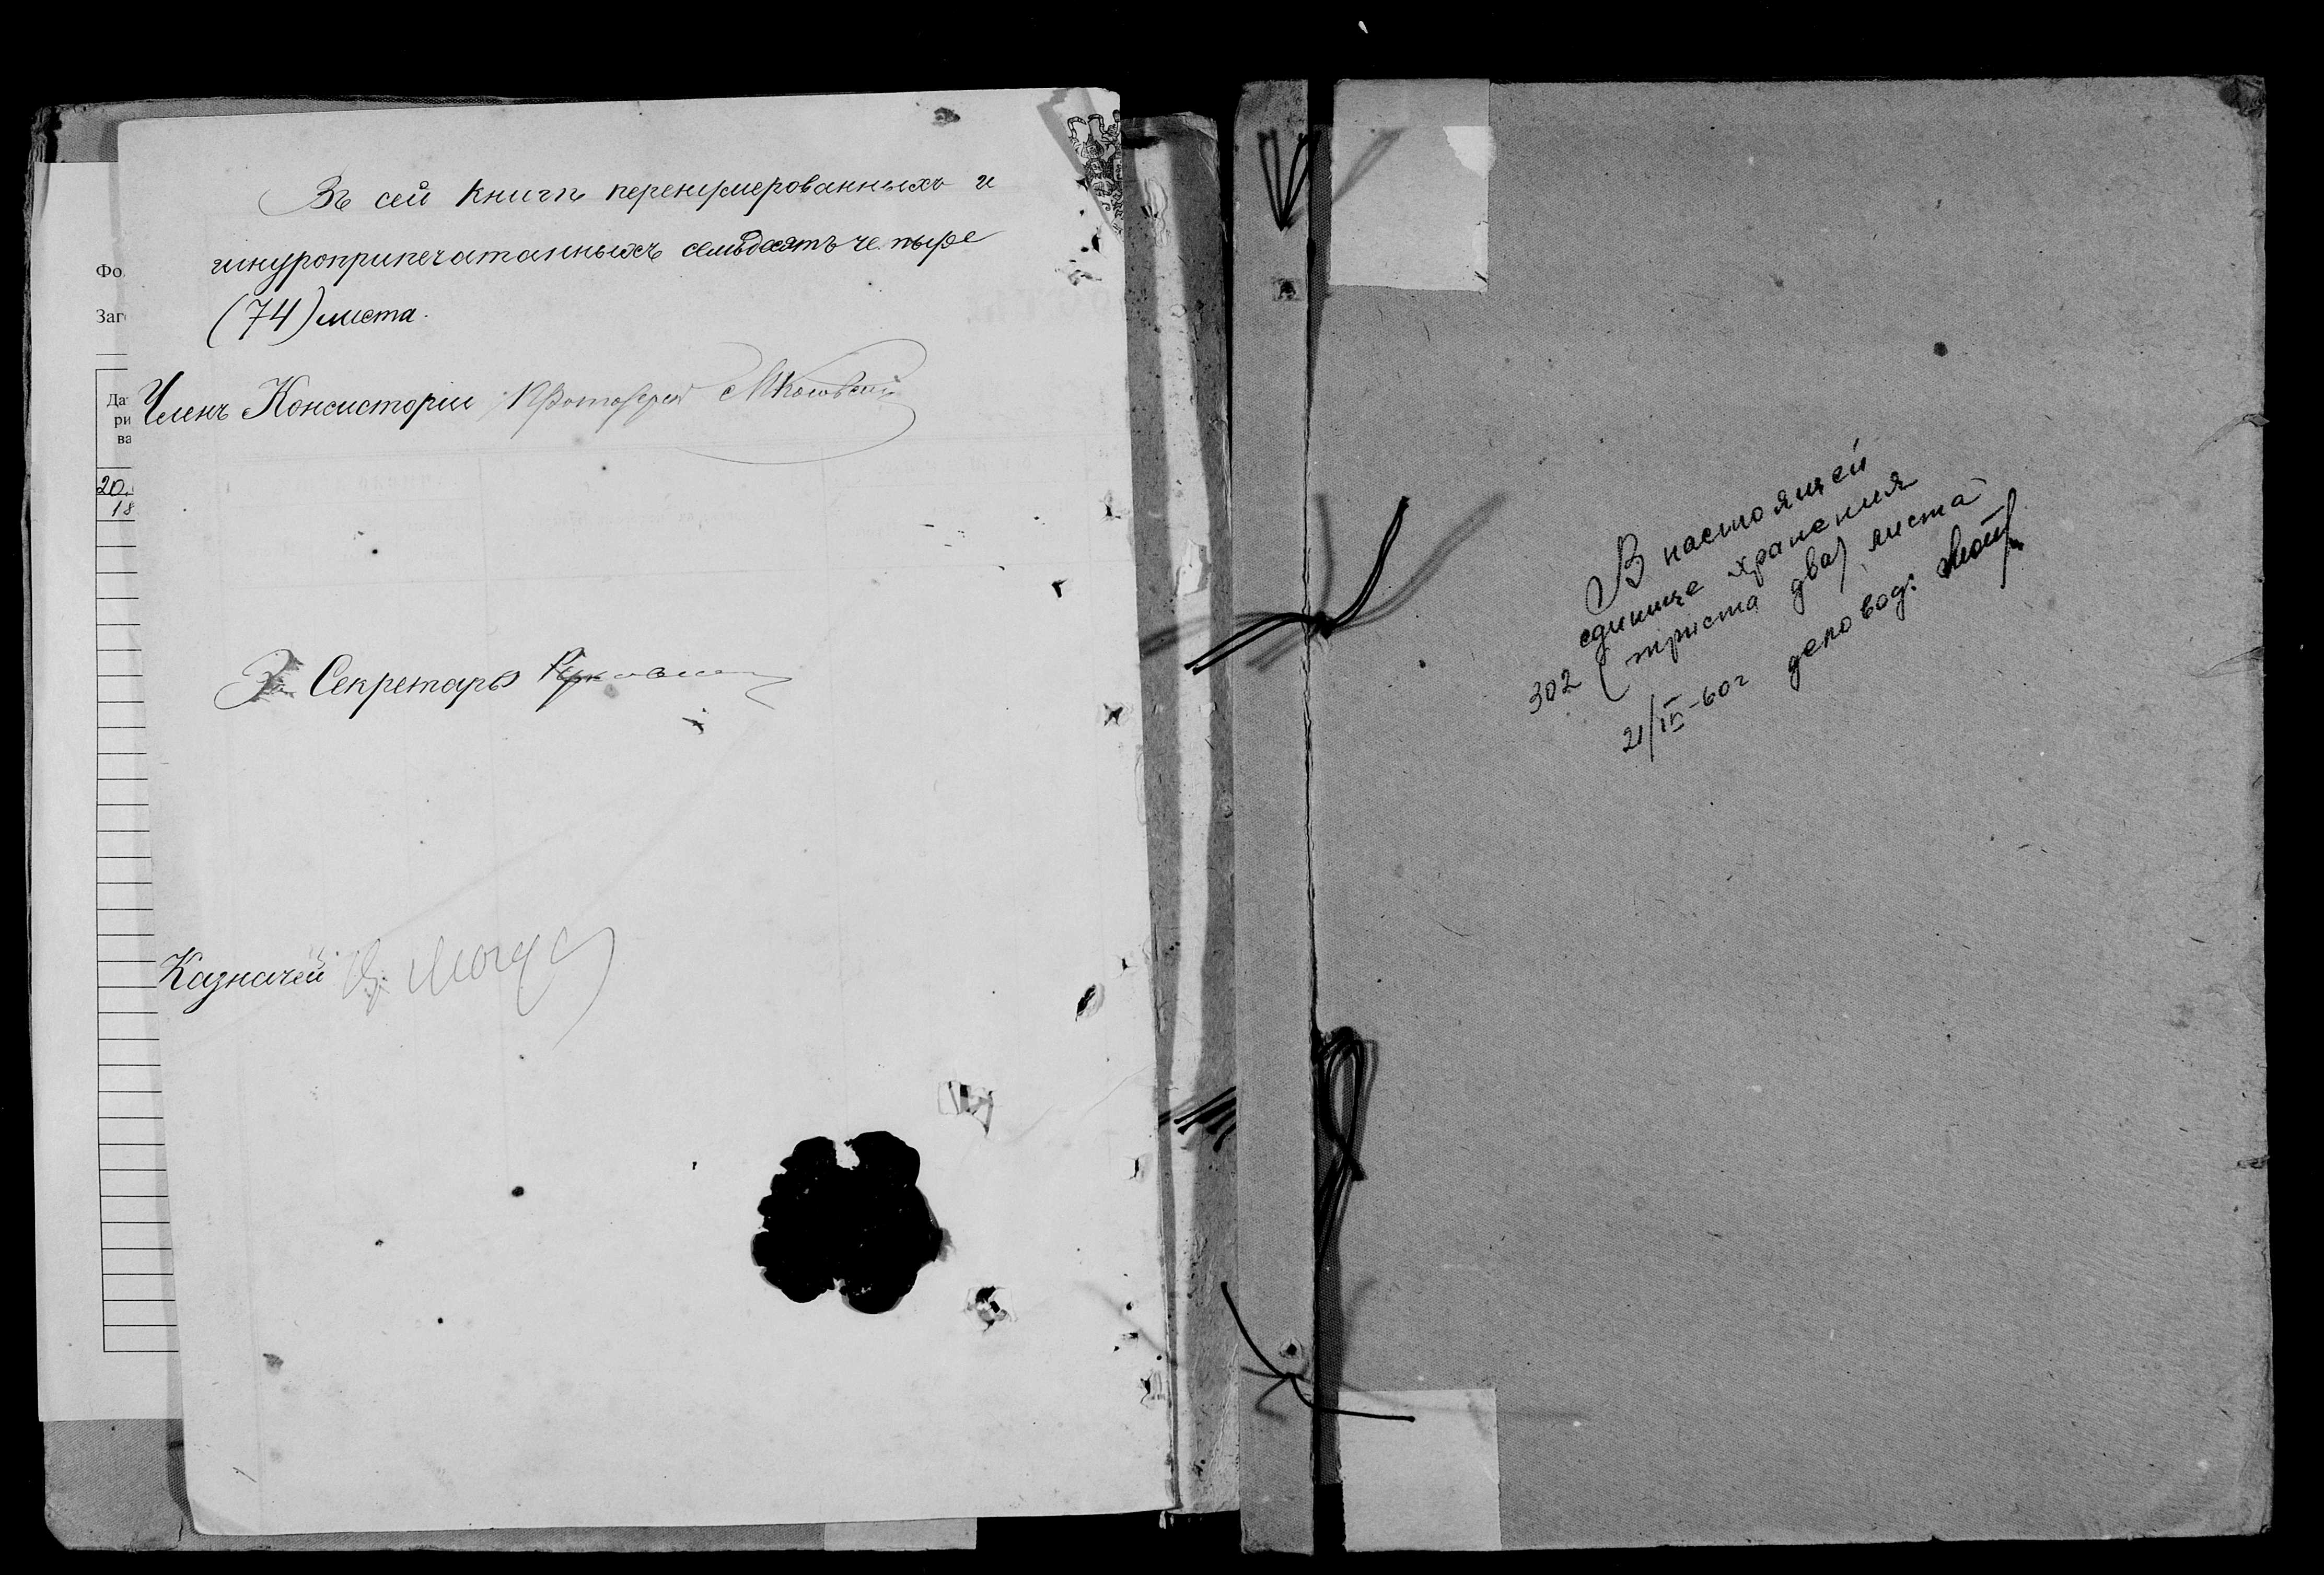 Въ сей книгѣ перенумерованныхъ и
шнуроприпечатанныхъ семьдесятъ четыре
(74) листа.
Членъ Консисторіи Протоіерей
За Секретаря
Казначей
Фо
Заг
Да
ри
ва
20.
18
В настоящей
единице хранения
302 (триста два) листа
21/IV-60г деловод: